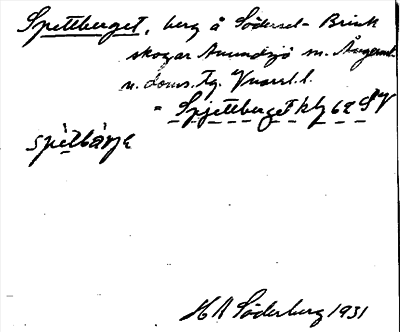 Spettberget, berg å Södersel - Brink
skogar Anundsjö sn. Ångerml.
n. doms. tg. Vnorrl. l.
= Spjettberget kbl 62 SV
spètbárjɛ
H A Söderberg 1931